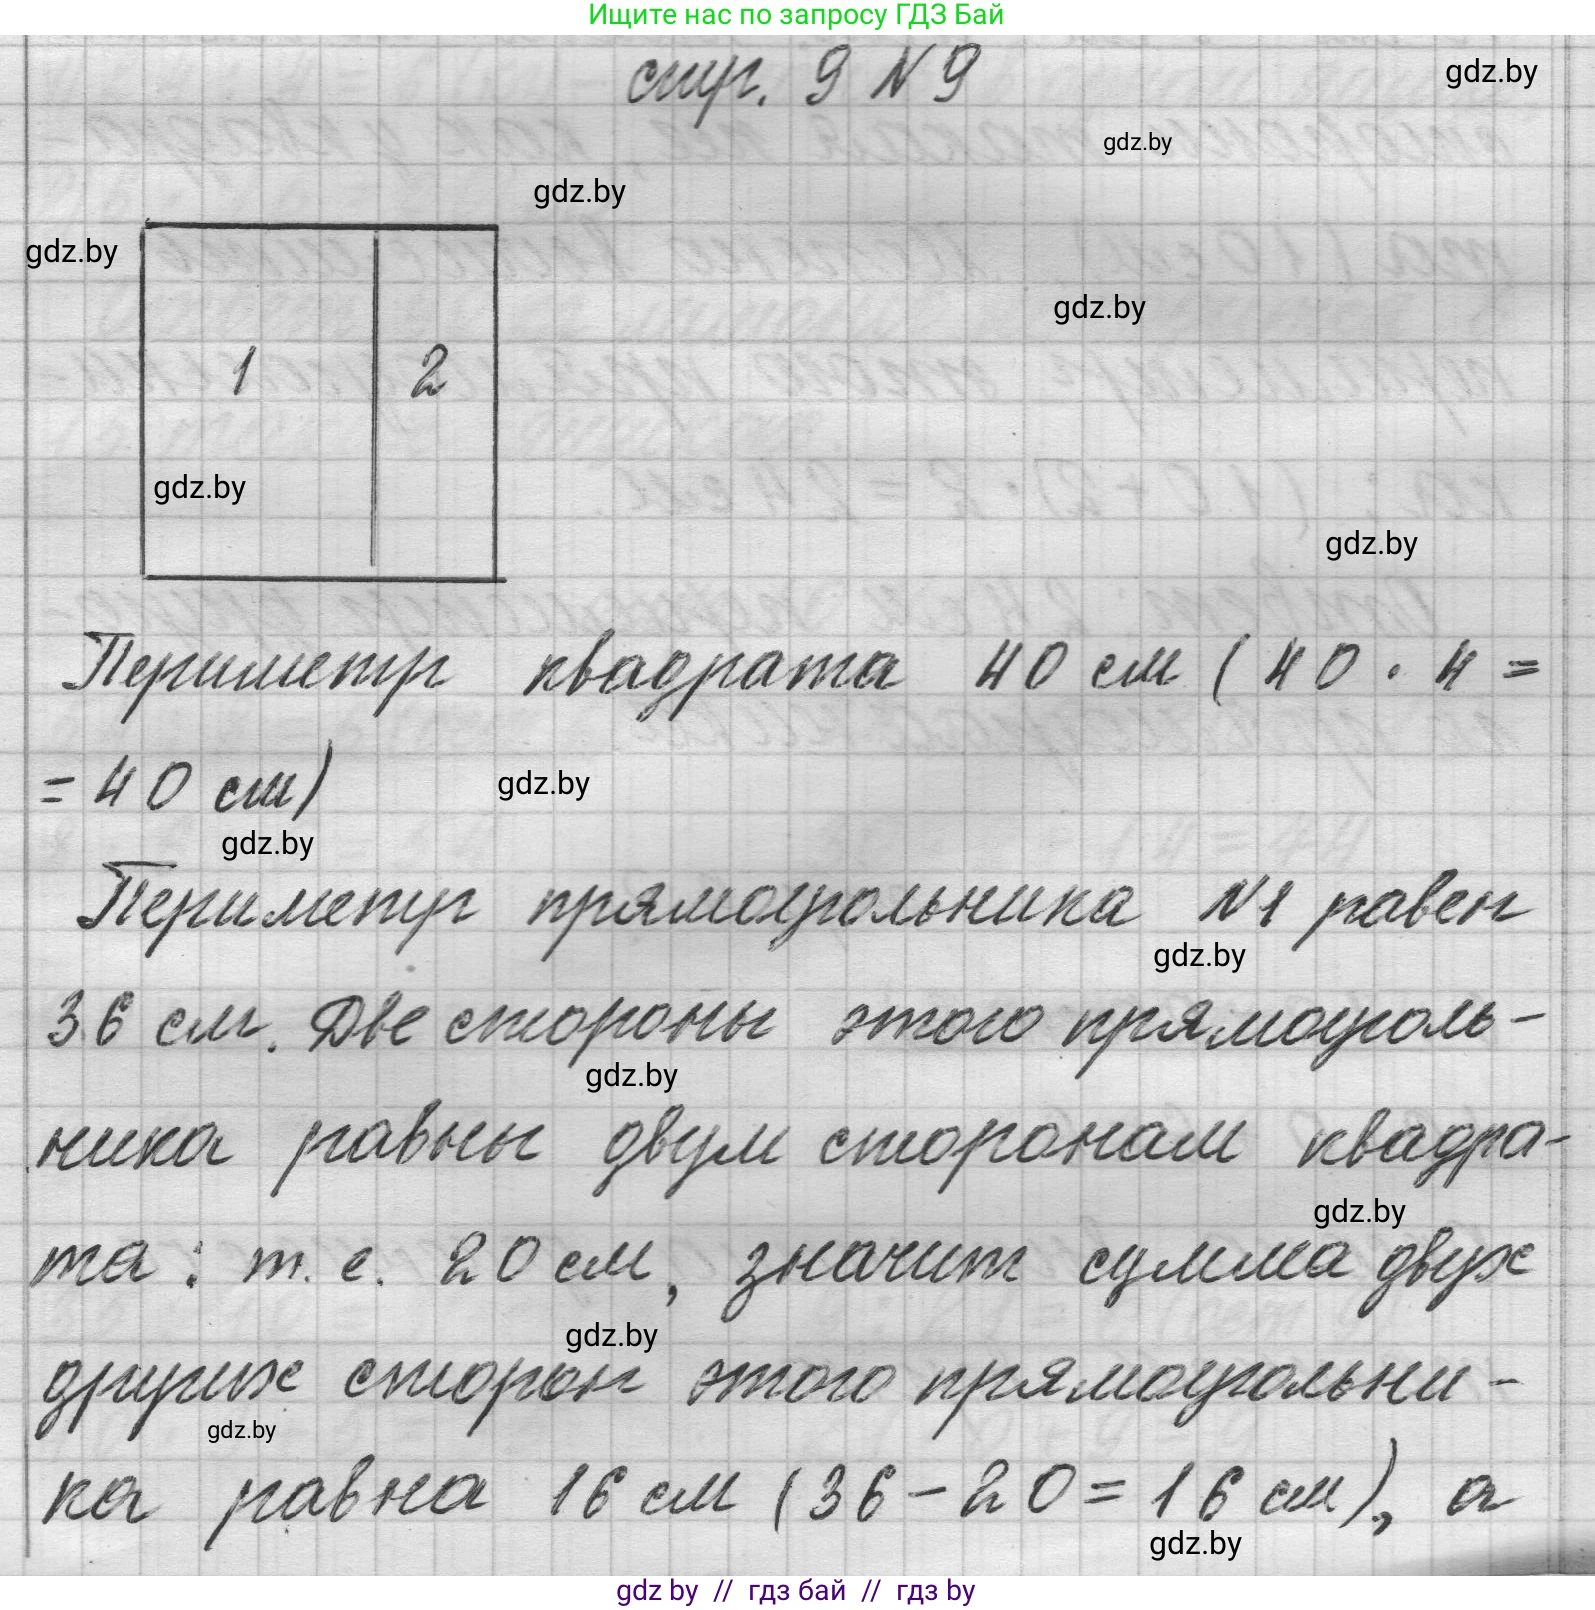 Ищите нас по запросу ГДЗ Бай
стр. 9 N 9
gdz.by
gdz.by
gdz.by
gdz.by
gdz.by
1 2
gdz.by
gdz.by
Периметр квадрата 40 см (40 · 4 =
= 40 см)
gdz.by
gdz.by
Периметр прямоугольника N1 равен
gdz.by
36 см. Две стороны этого прямоуголь-
gdz.by
ника равны двум сторонам квадра-
gdz.by
та: т. е. 20 см, значит сумма двух
gdz.by
других сторон этого прямоугольни-
gdz.by
ка равна 16 см (36 - 20 = 16 см), а
gdz.by
gdz by // гдз бай // гдз by